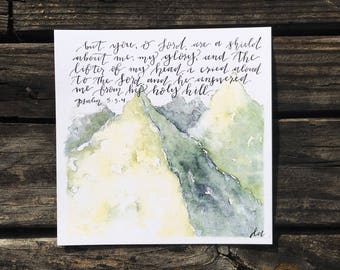 but you, O Lord, are a shield
about me, my glory, and the
lifter of my head. i cried aloud
to the Lord and he answered
me from his holy hill.
psalm 3:3-4